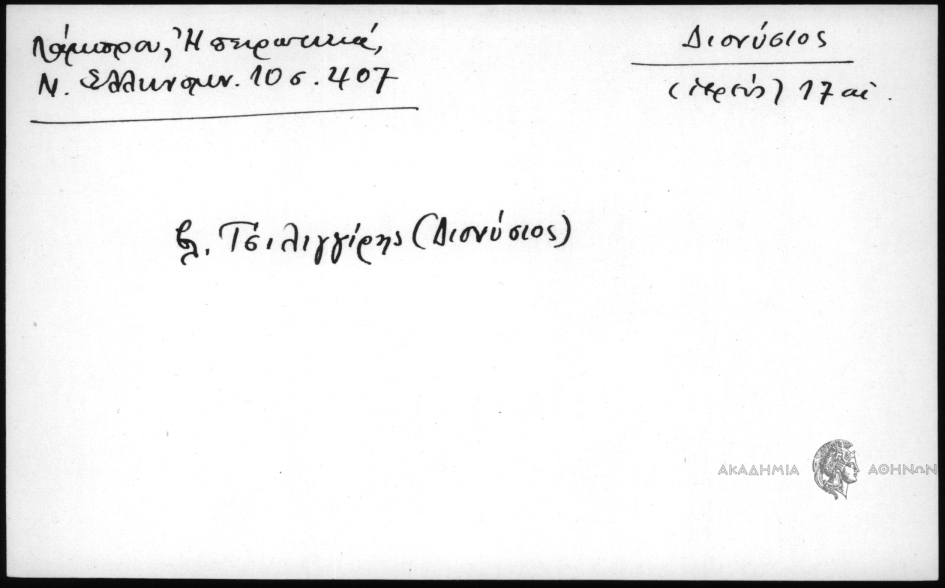 Λάμπρου, Ἠπειρωτικά,
Ν. Ἑλληνομν. 10 σ. 407
Διονύσιος
(ἱερεύς) 17 αἰ.
βλ. Τσιλιγγίρης (Διονύσιος)
ΑΚΑΔΗΜΙΑ ΑΘΗΝΩΝ